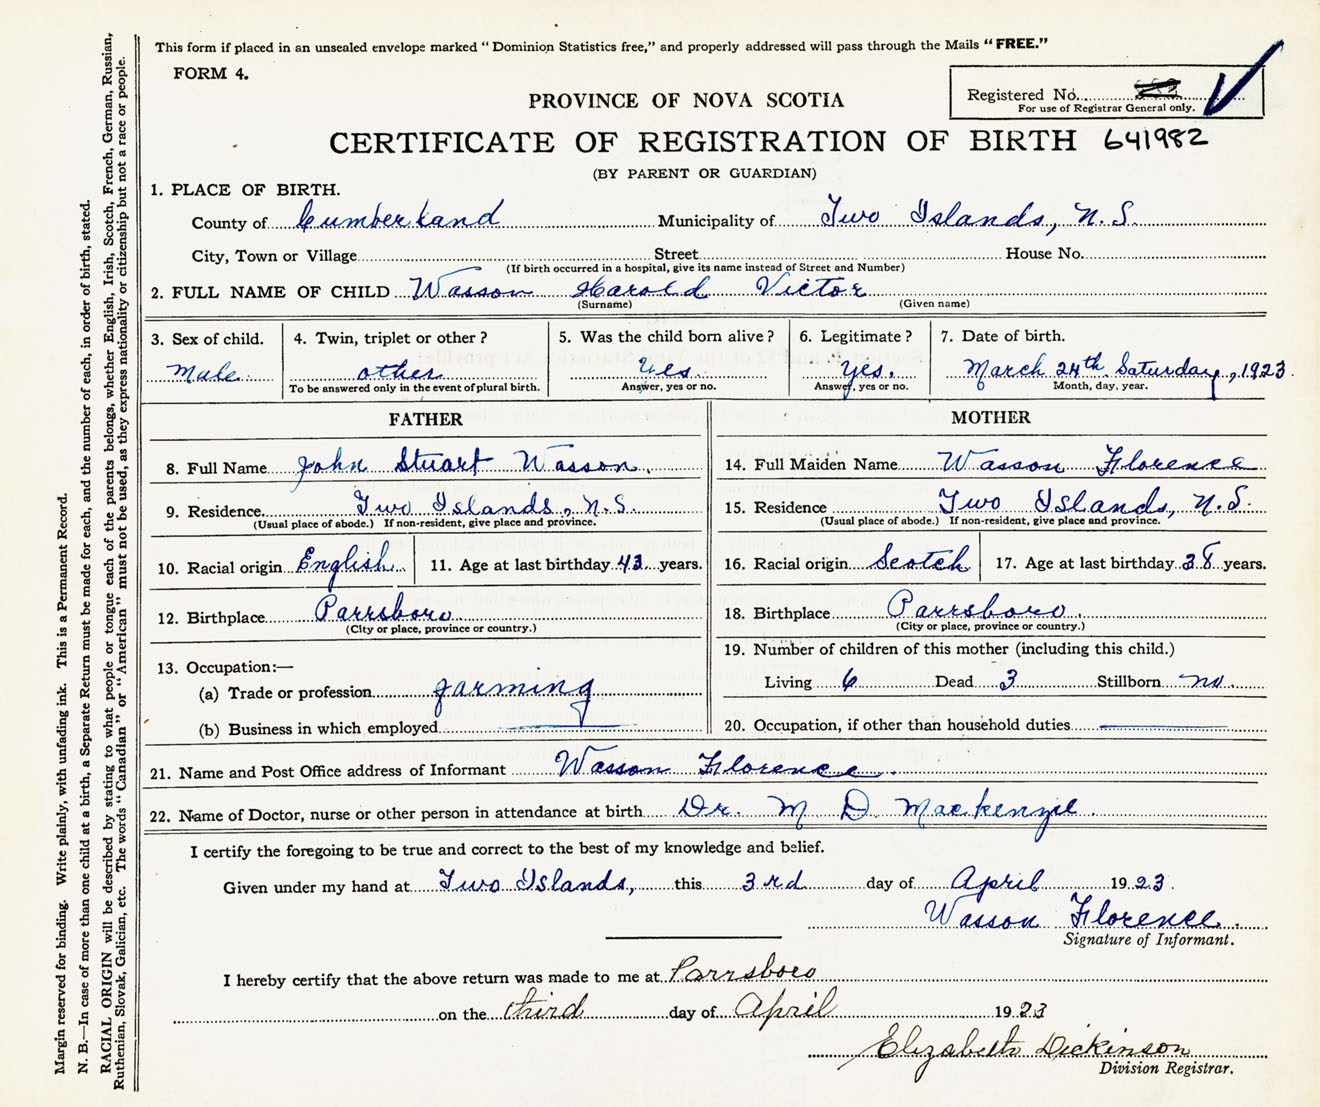 This form if placed in an unsealed envelope marked "Dominion Statistics free," and properly addressed will pass through the Mails "FREE."
FORM 4.
Registered No.
For use of Registrar General only.
PROVINCE OF NOVA SCOTIA
CERTIFICATE OF REGISTRATION OF BIRTH 641982
(BY PARENT OR GUARDIAN)
1. PLACE OF BIRTH.
County of Cumberland Municipality of Two Islands, N.S.
City, Town or Village Street House No.
(If birth occurred in a hospital, give its name instead of Street and Number)
2. FULL NAME OF CHILD Wasson Harold Victor
(Surname) (Given name)
3. Sex of child. 4. Twin, triplet or other? 5. Was the child born alive? 6. Legitimate? 7. Date of birth.
Male other Yes Yes. March 24th Saturday, 1923.
To be answered only in the event of plural birth. Answer, yes or no. Answer, yes or no. Month, day, year.
FATHER MOTHER
8. Full Name John Stuart Wasson. 14. Full Maiden Name Wasson Florence
9. Residence Two Islands, N.S. 15. Residence Two Islands, N.S.
(Usual place of abode.) If non-resident, give place and province. (Usual place of abode.) If non-resident, give place and province.
10. Racial origin English. 11. Age at last birthday 43 years. 16. Racial origin Scotch 17. Age at last birthday 38 years.
12. Birthplace Parrsboro. 18. Birthplace Parrsboro.
(City or place, province or country.) (City or place, province or country.)
19. Number of children of this mother (including this child.)
13. Occupation:—
(a) Trade or profession farming Living 6 Dead 3 Stillborn no.
(b) Business in which employed 20. Occupation, if other than household duties
21. Name and Post Office address of Informant Wasson Florence.
22. Name of Doctor, nurse or other person in attendance at birth Dr. M D Mackenzie.
I certify the foregoing to be true and correct to the best of my knowledge and belief.
Given under my hand at Two Islands, this 3rd day of April 1923.
Wasson Florence.
Signature of Informant.
I hereby certify that the above return was made to me at Parrsboro
on the third day of April 1923
Elizabeth Dickinson
Division Registrar.
Margin reserved for binding. Write plainly, with unfading ink. This is a Permanent Record.
N. B.—In case of more than one child at a birth, a Separate Return must be made for each, and the number of each, in order of birth, stated.
RACIAL ORIGIN will be described by stating to what people or tongue each of the parents belongs, whether English, Irish, Scotch, French, German, Russian,
Ruthenian, Slovak, Galician, etc. The words "Canadian" or "American" must not be used, as they express nationality or citizenship but not a race or people.